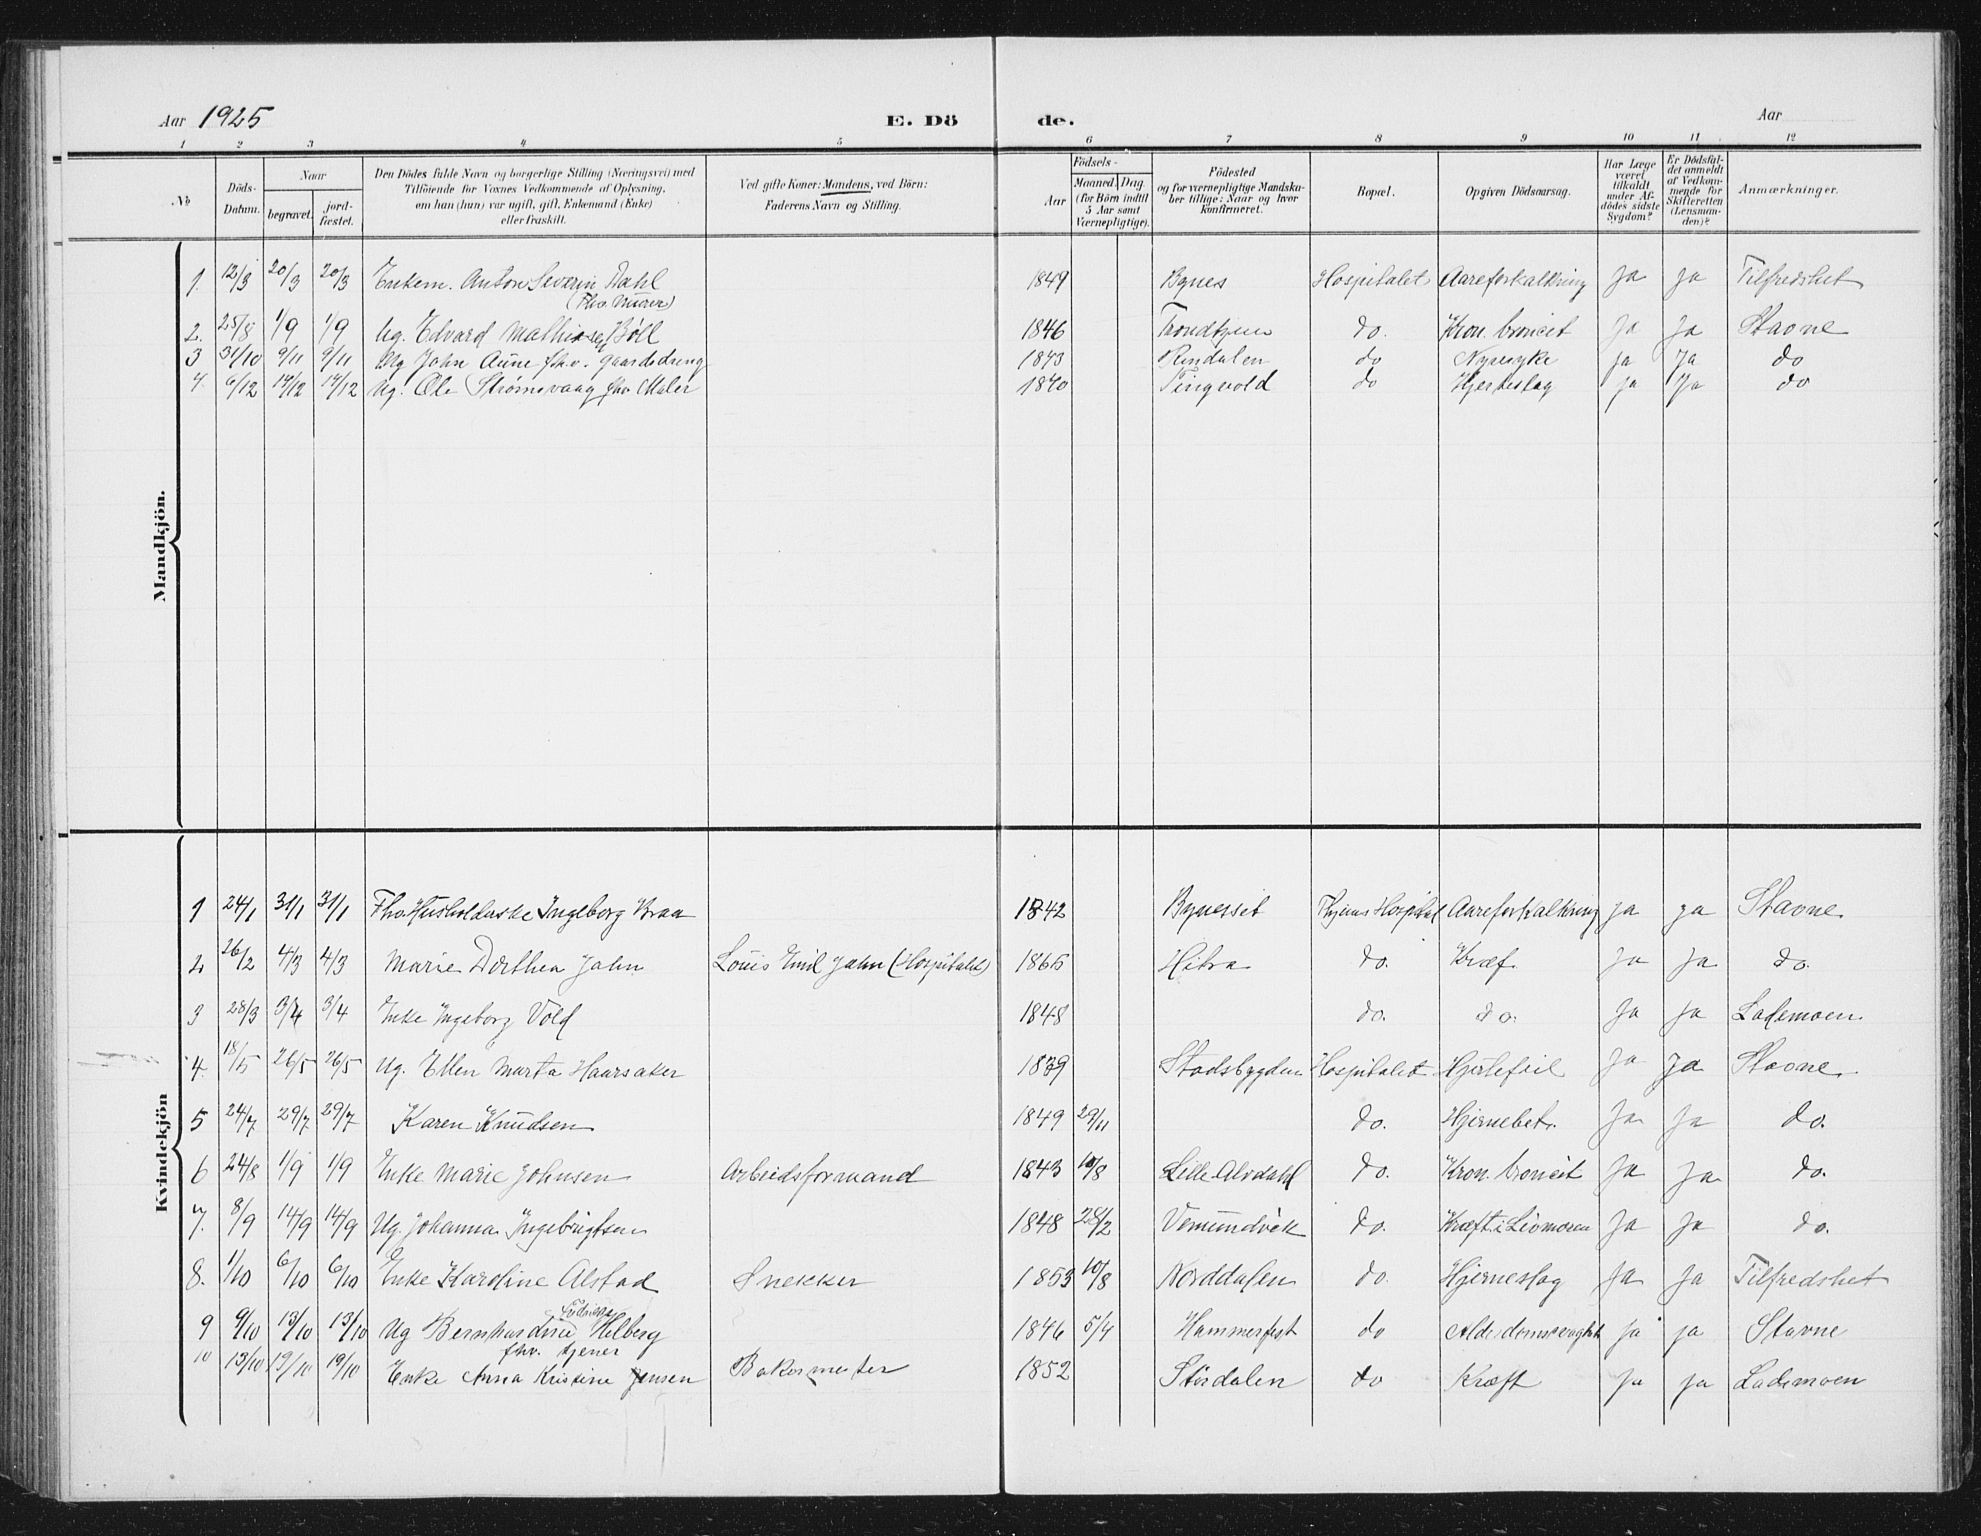 Aar 1925 E. Dö de. Aar
1 2 3 4 5 6 7 8 9 10 11 12
No
Döds-
Datum.
Naar
begravet.
jord-
fæstet.
Den Dödes fulde Navn og borgerlige Stilling (Næringsvei) med
Tilföiende for Voxnes Vedkommende af Oplysning,
om han (hun) var ugift, gift, Enkemand (Enke)
eller fraskilt.
Ved gifte Koner: Mandens, ved Börn:
Faderens Navn og Stilling.
Födsels-
Aar
Maaned. Dag.
(for Börn indtil
5 Aar samt
Værnepligtige).
Födested
og for værnepligtige Mandska-
ber tillige: Naar og hvor
Konfirmeret.
Bopæl.
Opgiven Dödsaarsag.
Har Læge
været
tilkaldt
under Af-
dödes sidste
Sygdom?
Er Dödsfal-
det anmeldt
af Vedkom-
mende for
Skifteretten
(Lensman-
den)?
Anmærkninger.
Mandkjön.
1. 12/3 20/3 20/3 Enkem. Anton Severin Dahl 1849 Bynes Hospitalet Aareforkalkning Ja Ja Tilfredshet
(Fhv. Murer)
2. 25/8 1/9 1/9 Ug. Edvard Mathisen Böll 1846 Trondhjem do. Kron. broncit Ja Ja Stavne
3 31/10 9/11 9/11 Ug John Aune fhv. gaardsdreng 1843 Rindalen do Nyresyke Ja Ja do
4 6/12 14/12 14/12 Ug. Ole Strömsvaag fhv Maler 1840 Tingvold do Hjerteslag Ja Ja do
Kvindekjön
1 24/1 31/1 31/1 Fhv Husholderske Ingeborg Kraa 1842 Bynesset Thjems Hospital Aareforkalkning Ja Ja Stavne
2 26/2 4/3 4/3 Marie Dorthea Jahn Louis Emil Jahn (Hospitalet) 1865 Hitra do. Kræf. Ja Ja do.
3 28/3 3/4 3/4 Enke Ingeborg Vold 1848 do. do. Ja Ja Lademoen.
4. 18/5 26/5 26/5 Ug. Ellen Marta Haarsaker 1839 Stadsbygden Hospitalet Hjertefeil Ja Ja Stavne.
5 24/7 29/7 29/7 Karen Knudsen 1849 29/11 do. Hjernebet. Ja Ja do.
6 24/8 1/9 1/9 Enke Marie Johnsen Arbeidsformand 1843 10/8 Lille-Alvdahl do. Kron. broncit Ja Ja do.
7. 8/9 14/9 14/9 Ug. Johanna Ingebrigtsen 1848 28/2 Vemundvik do. Kræft i Livmoren Ja Ja do.
8. 1/10 6/10 6/10 Enke Karoline Alstad Snekker 1853 10/8 Norddalen do. Hjerneslag Ja Ja Tilfredshet
9 9/10 13/10 13/10 Ug Bernhardine Helberg 1846 5/4 Hammerfest do Alderdomssvaghet Ja Ja Stavne
fhv. tjener
10 13/10 19/10 19/10 Enke Anna Kristine Jensen Bakermester 1852 Stördalen do Kræft Ja Ja Lademoen